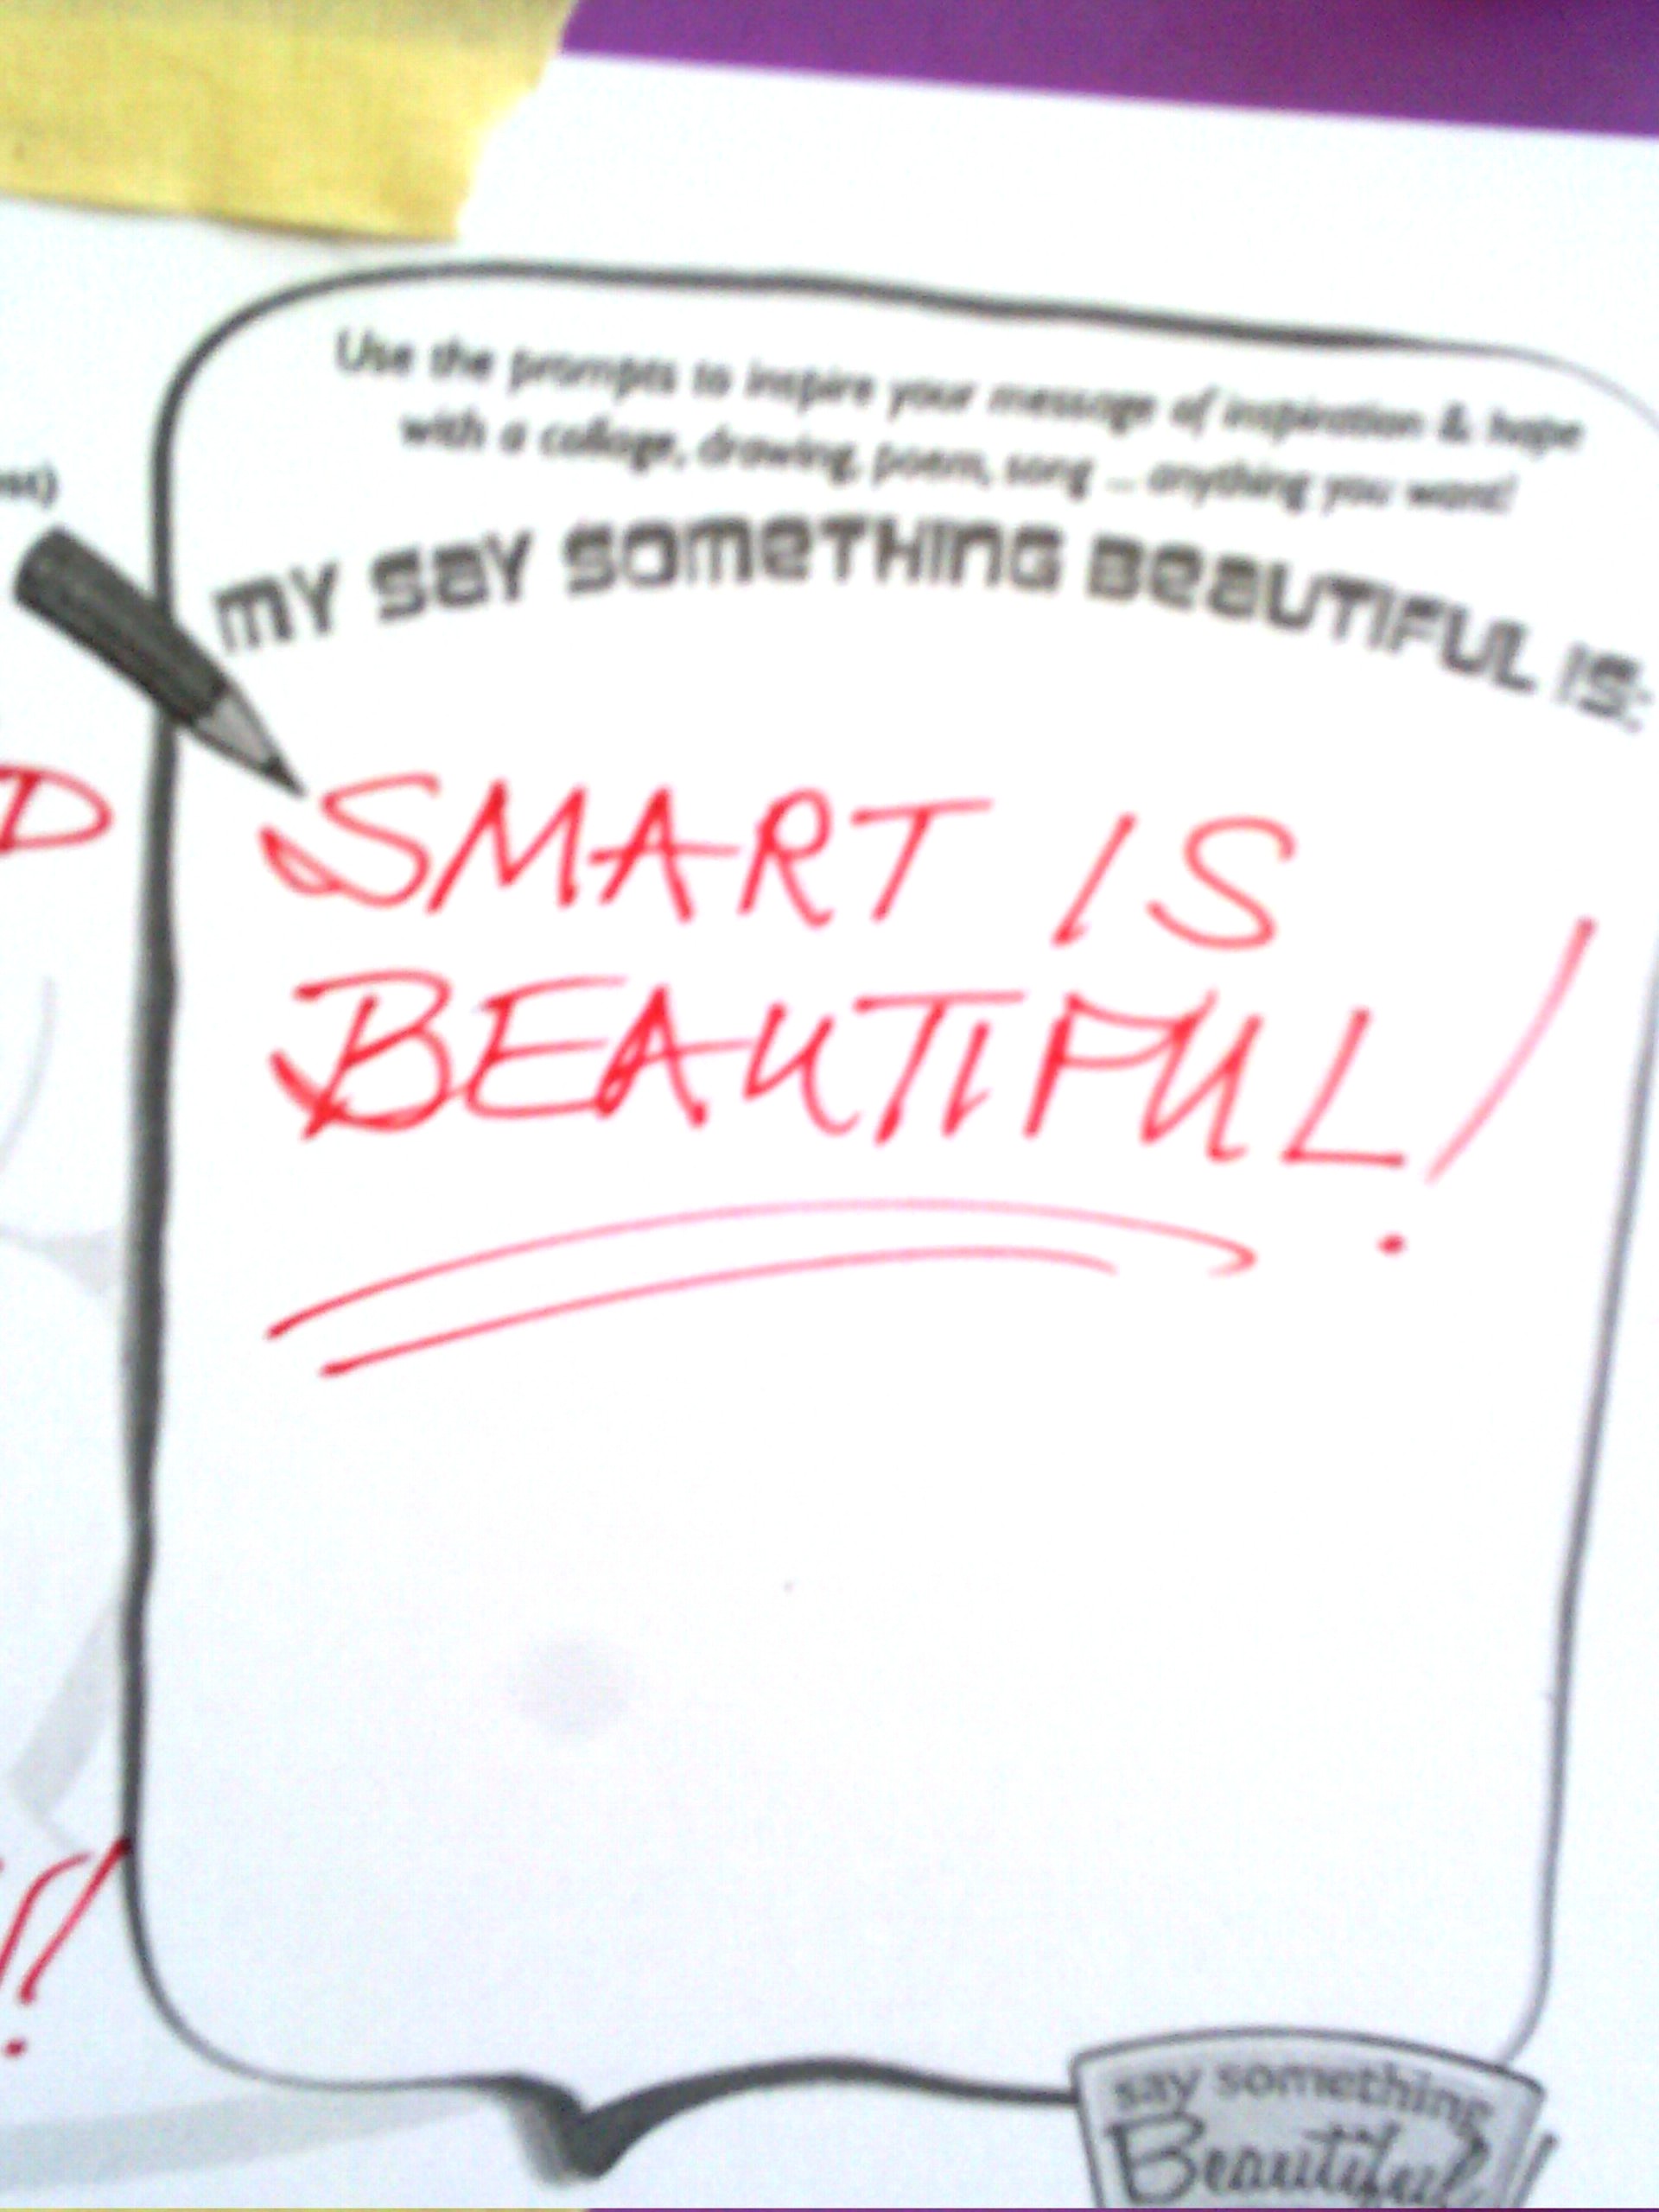 Use the prompts to inspire your message of inspiration & hope
with a collage, drawing, poem, song ... anything you want!
MY SAY SOMETHING BEAUTIFUL IS:
SMART IS
BEAUTIFUL!
say something
Beautiful